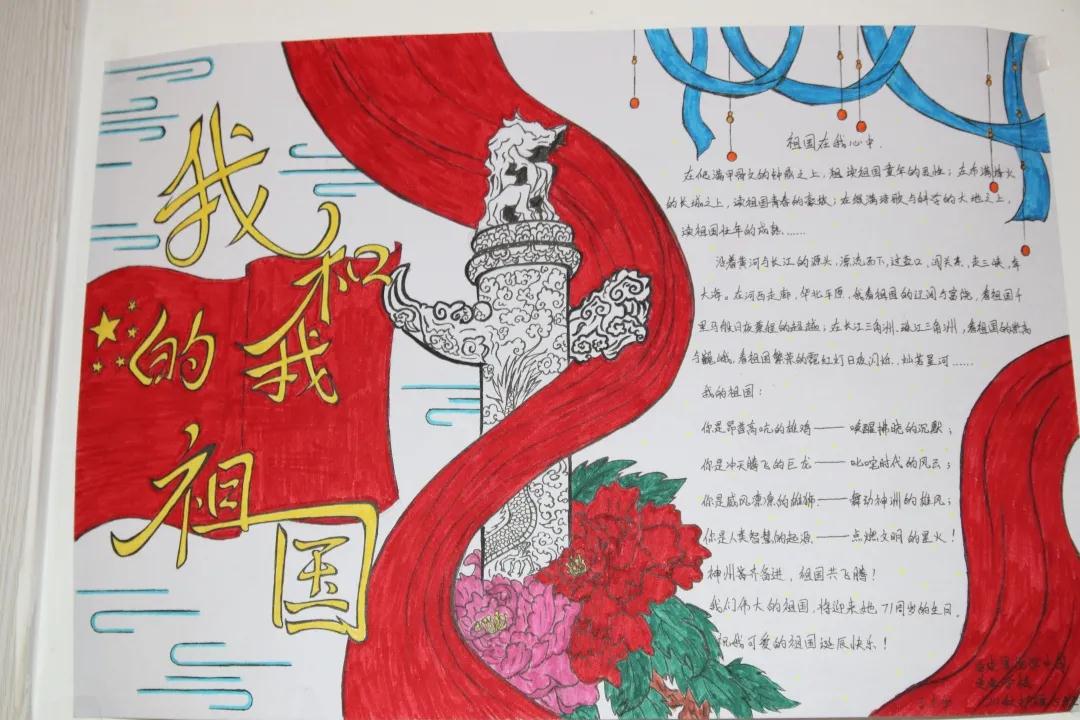 我和我
的祖国
祖国在我心中.
在低满甲骨文的钟鼎之上,组读祖国童年的且性;在布满烽火
的长城之上,读祖国青春的豪放;在缀满诗歌与的大地之上,
读祖国壮年的成熟……
沿着黄河与长江的源头,漂流而下,过壶口,闯关东,走三峡,奔
大海。在河西走廊,华北平原,我看祖国的辽阔与富饶,看祖国千
里马般日夜兼程的超越;在长江三角洲,珠江三角洲,看祖国的崇高
与巍峨,看祖国繁荣的霓虹灯日夜闪烁,灿若星河……
我的祖国:
你是昂首高吭的雄鸡——唤醒拂晓的沉默;
你是冲天腾飞的巨龙——叱咤时代的风云;
你是威风凛凛的雄狮——舞动神州的雄风;
你是人类智慧的起源——点燃文明的星火!
神州齐奋进,祖国共飞腾!
我们伟大的祖国,将迎来她71周岁的生日。
祝我可爱的祖国诞辰快乐!